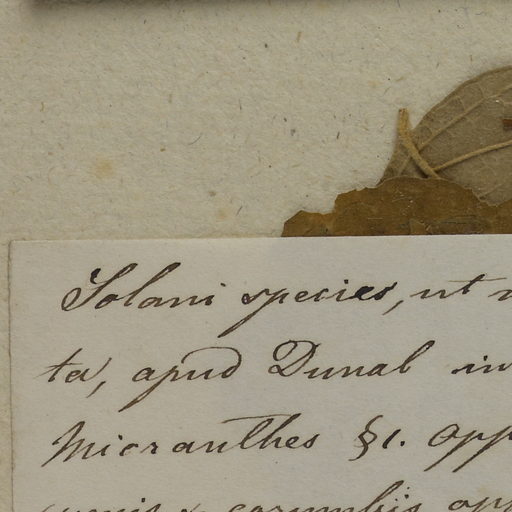 Solani species, ut
ta, apud Dunal in
Micranthes §1. opp
corymbis opp